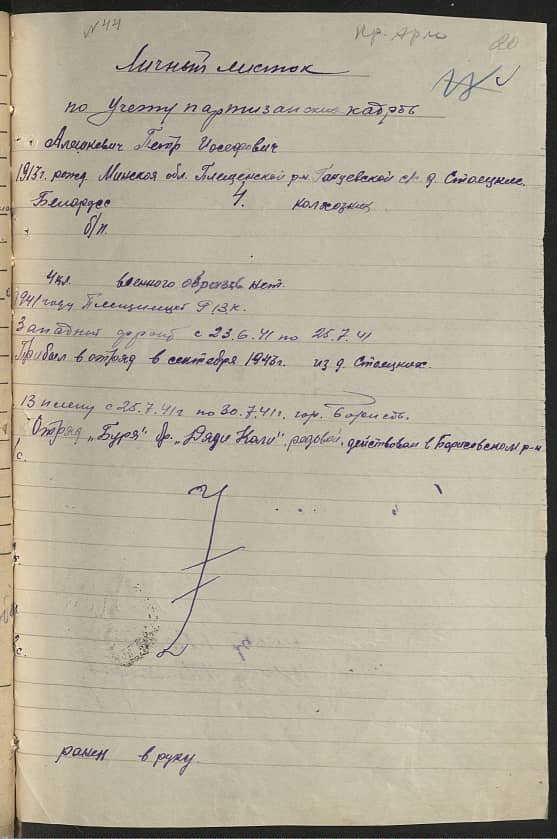 № 44
Пр. Арм
20
Личный листок
по учету партизанских кадров
Петр Иосифович
1913г. рожд. Минская обл. Плещенской рн. с/с д. Стаецкие.
Белорусс Ч. колхозник
б/п.
4 кл. военного образов. нет.
1941 году РВК.
Западный фронт с 23.6.41 по 25.7.41
Прибыл в отряд в сентября 1943г. из д. Стаецких.
В плену с 25.7.41г по 30.7.41г. гор. Борисовъ.
Отряд „Буря" бр. „Дяди Коли" рядовой, действовал в Борисовском р-н.
с.
с.
ранен в руку.